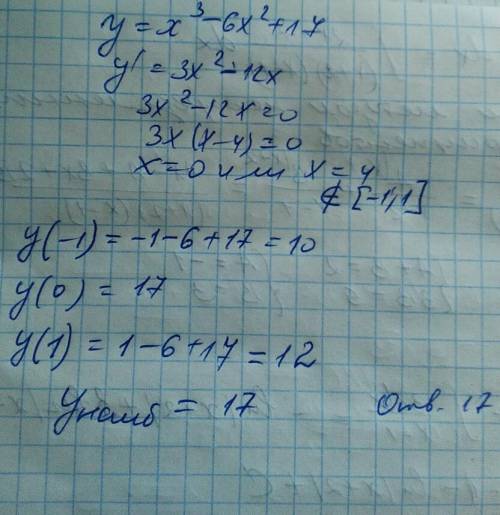 y = x³-6x²+17
y' = 3x²-12x
3x²-12x=0
3x(x-4)=0
x=0 или x=4
∉ [-1;1]
y(-1) = -1-6+17 = 10
y(0) = 17
y(1) = 1-6+17 = 12
y наиб = 17 Отв. 17